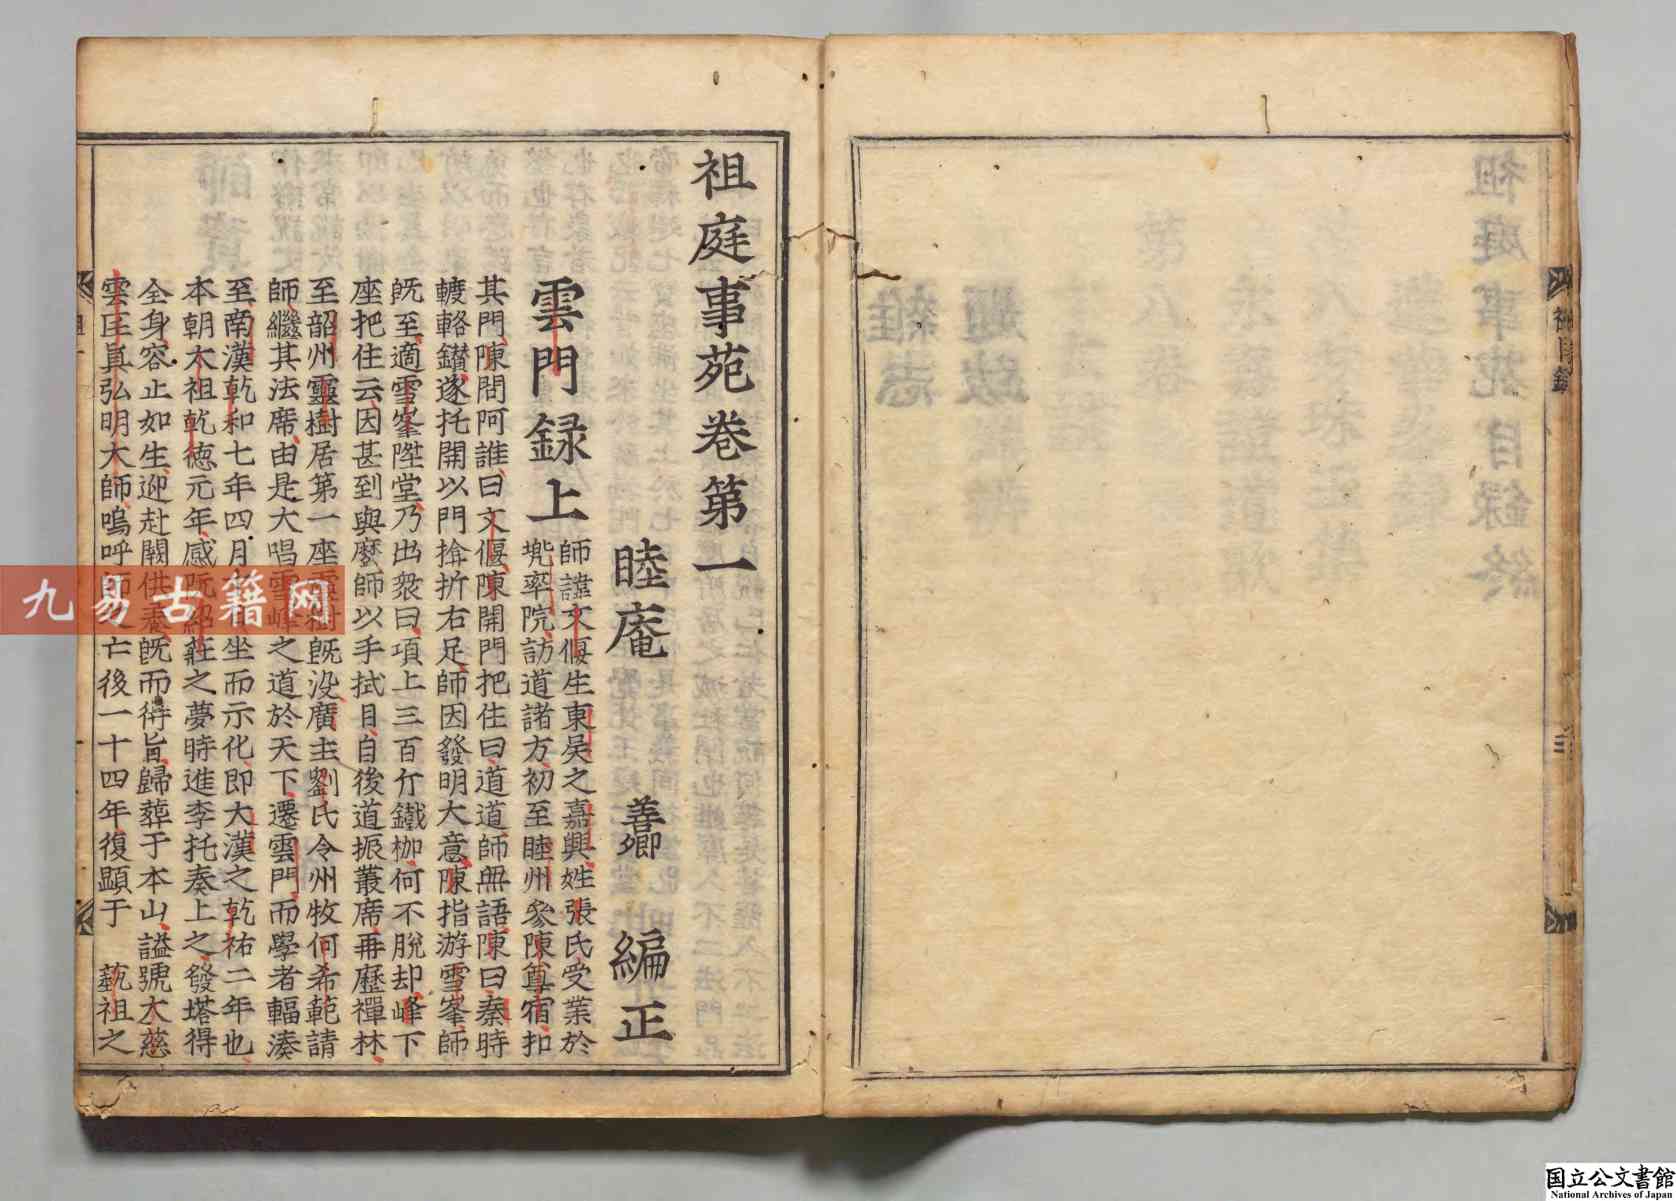 祖庭事苑卷第一
睦庵 善卿 編正
雲門録上
師諱文偃生東吳之嘉興姓張氏受業於
兠率院訪道諸方初至睦州參陳尊宿扣
其門陳問阿誰曰文偃陳開門把住曰道道師無語陳曰秦時
轆轢鑽遂托開以門揜折右足師因發明大意陳指游雪峯師
旣至適雪峯陞堂乃出衆曰項上三百斤鐵枷何不脫却峰下
座把住云因甚到與麼師以手拭目自後道振叢席再歷禪林
至韶州靈樹居第一座靈樹旣没廣主劉氏令州牧何希範請
師繼其法席由是大唱雪峰之道於天下遷雲門而學者輻湊
至南漢乾和七年四月 坐而示化即大漢之乾祐二年也
本朝太祖乾德元年感阮紹莊之夢時進李托奏上之發塔得
全身容止如生迎赴闕供養旣而得旨歸葬于本山謚號大慈
雲匡真弘明大師嗚呼師 亡後一十四年復顯于 藝祖之
祖目録
九易古籍网
国立公文書館
National Archives of Japan